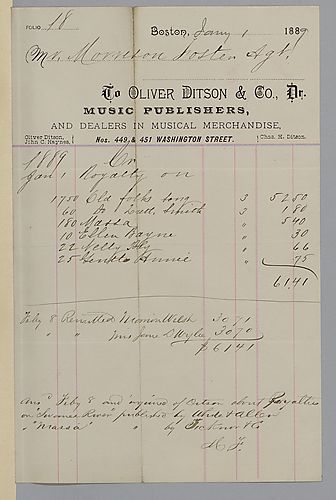 FOLIO 18
Boston, Jany 1 1889
Mr. Morrison Foster Agt.
To OLIVER DITSON & CO., Dr.
MUSIC PUBLISHERS,
AND DEALERS IN MUSICAL MERCHANDISE,
Oliver Ditson, John C. Haynes. Nos. 449, & 451 WASHINGTON STREET. Chas. H. Ditson.
1889 Cr
Jan 1 Royalty on
1750 Old folks song 3 52 50
60 Do 3 1 80
180 Massa " 5 40
10 Ellen Bayne " 30
22 Nelly Bly " 66
25 Gentle Annie " 75
61.41
Feby 8 Remitted 30.71
" " Mrs Jane D Wyley 30.70
$61.41
Ansd Feby 8 and inquired of Ditson about Royalties
on Swanee River published by White & Allen
" "Massa" " by Ticknor & Co
M. F.